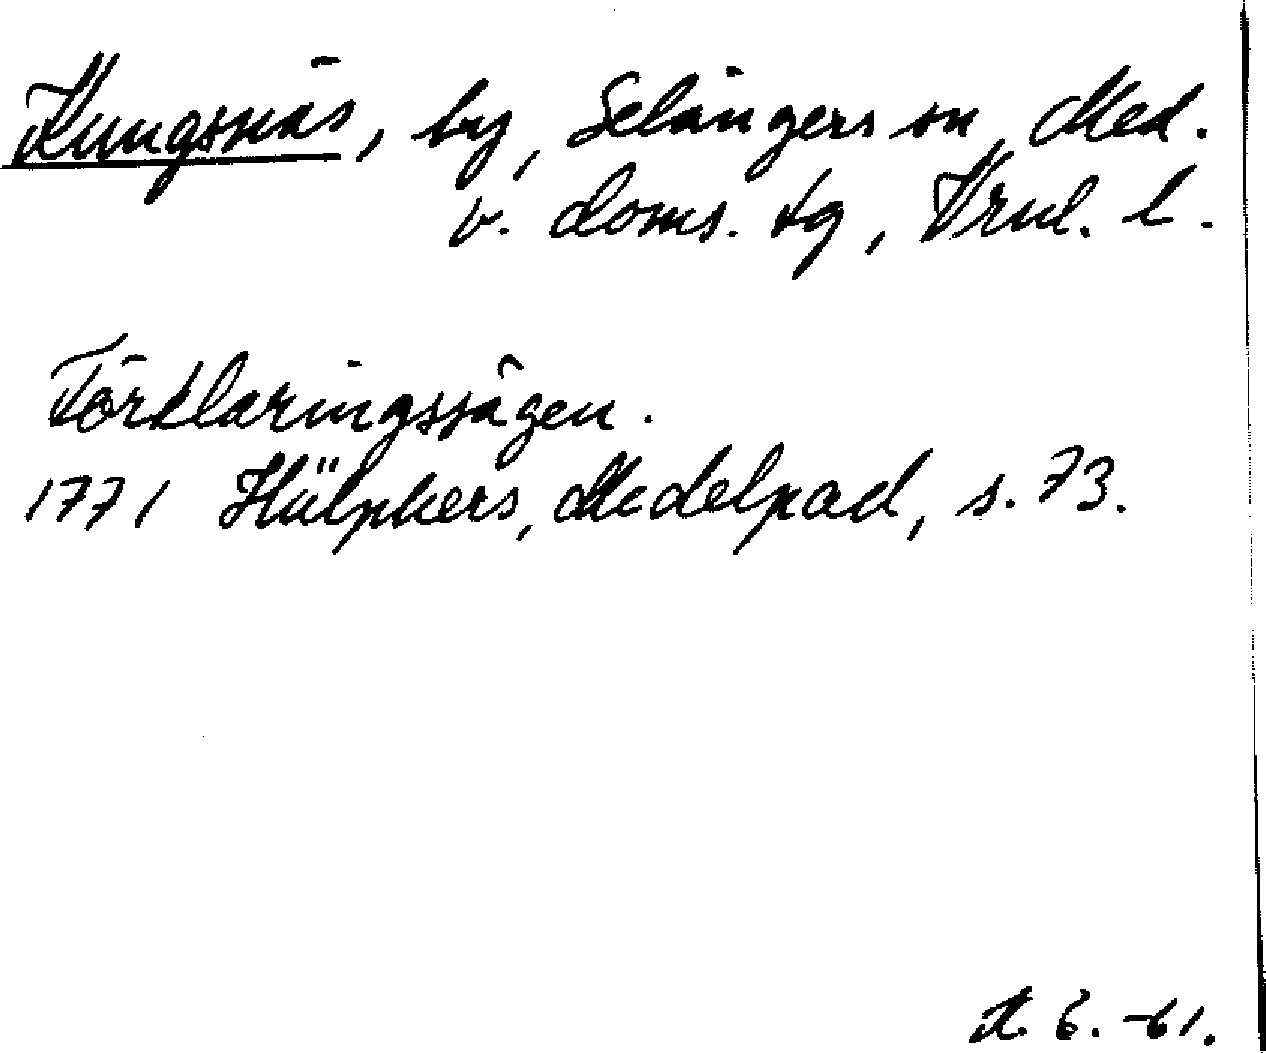 Kungsnäs, by, Selångers sn, Med.
v. doms. tg, Vrnl. l.
Förklaringssägen.
1771 Hülphers, Medelpad, s. 73.
-61.